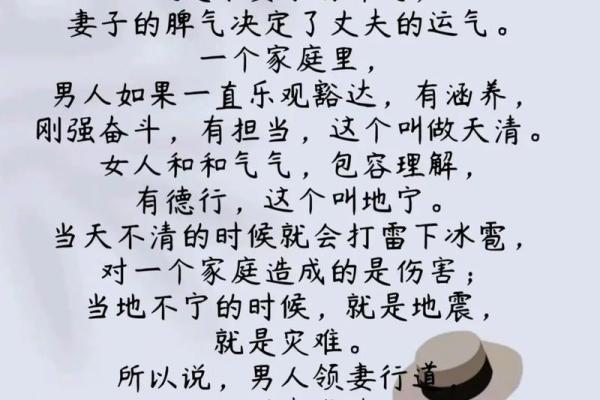 妻子的脾气决定了丈夫的运气。
一个家庭里，
男人如果一直乐观豁达，有涵养，
刚强奋斗，有担当，这个叫做天清。
女人和和气气，包容理解，
有德行，这个叫地宁。
当天不清的时候就会打雷下冰雹，
对一个家庭造成的是伤害；
当地不宁的时候，就是地震，
就是灾难。
所以说，男人领妻行道，